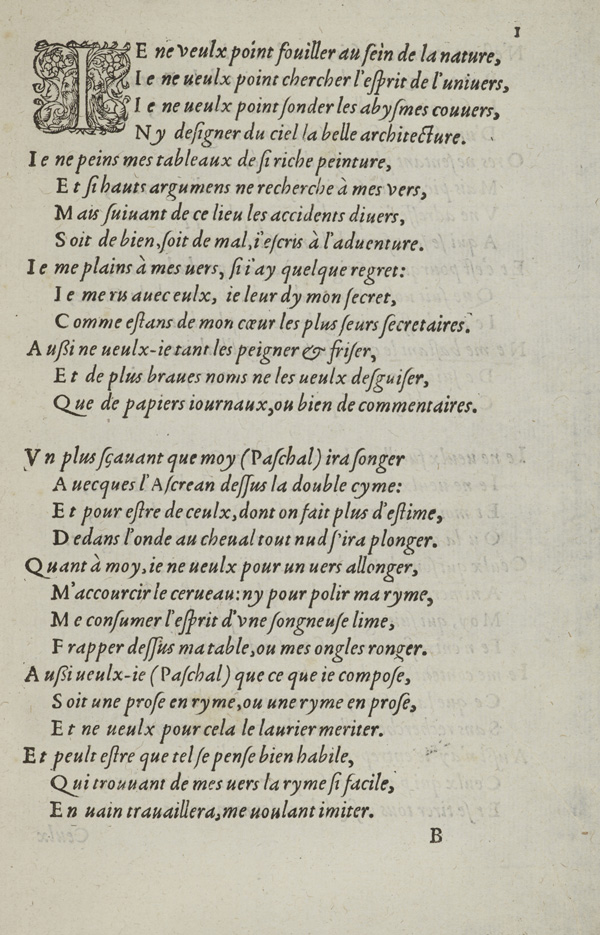 1
IE ne veulx point fouiller au ſein de la nature,
Ie ne ueulx point chercher l'eſprit de l'uniuers,
Ie ne ueulx point ſonder les abyſmes couuers,
Ny deſigner du ciel la belle architecture.
Ie ne peins mes tableaux de ſi riche peinture,
Et ſi hauts argumens ne recherche à mes vers,
Mais ſuiuant de ce lieu les accidents diuers,
Soit de bien, ſoit de mal, i'eſcris à l'aduenture.
Ie me plains à mes uers, ſi i'ay quelque regret:
Ie me ris auec eulx, ie leur dy mon ſecret,
Comme eſtans de mon cœur les plus ſeurs ſecretaires.
Außi ne ueulx-ie tant les peigner & friſer,
Et de plus braues noms ne les ueulx deſguiſer,
Que de papiers iournaux, ou bien de commentaires.
Vn plus ſçauant que moy (Paſchal) ira ſonger
Auecques l'Aſcrean deſſus la double cyme:
Et pour eſtre de ceulx, dont on fait plus d'eſtime,
Dedans l'onde au cheual tout nud ſ'ira plonger.
Quant à moy, ie ne ueulx pour un uers allonger,
M'accourcir le cerueau: ny pour polir ma ryme,
Me conſumer l'eſprit d'vne ſongneuſe lime,
Frapper deſſus ma table, ou mes ongles ronger.
Außi ueulx-ie (Paſchal) que ce que ie compoſe,
Soit une proſe en ryme, ou une ryme en proſe,
Et ne ueulx pour cela le laurier meriter.
Et peult eſtre que tel ſe penſe bien habile,
Qui trouuant de mes uers la ryme ſi facile,
En uain trauaillera, me uoulant imiter.
B